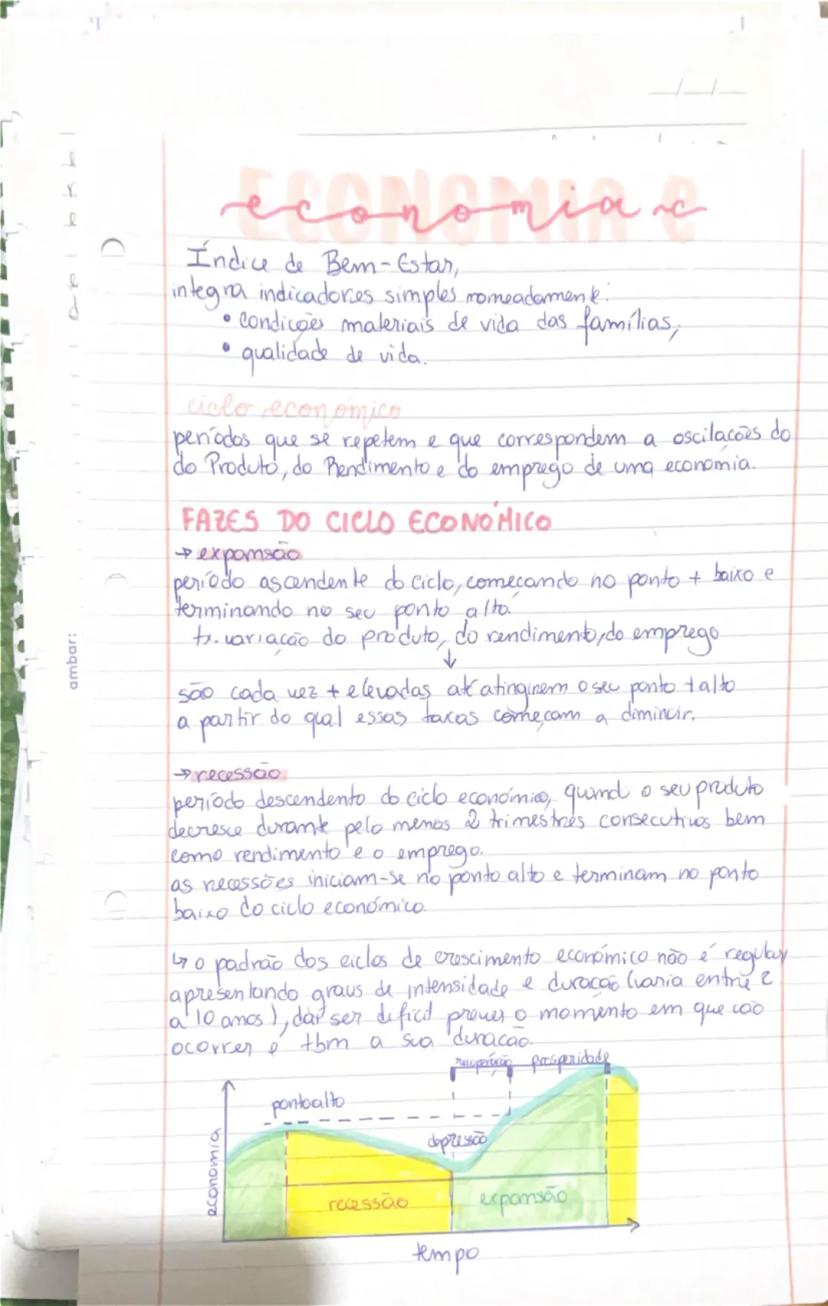 ECONOMIA C
economia c
Índice de Bem-Estar,
integra indicadores simples nomeadament:
• condições materiais de vida das famílias,
• qualidade de vida.
ciclo económico
períodos que se repetem e que correspondem a oscilações do
do Produto, do Rendimento e do emprego de uma economia.
FAZES DO CICLO ECONÓMICO
→ expansão
período ascendente do ciclo, começando no ponto + baixo e
terminando no seu ponto alto.
tx. variação do produto, do rendimento, do emprego
↓
são cada vez + elevadas até atingirem o seu ponto + alto
a partir do qual essas taxas começam a diminuir.
→ recessão
período descendento do ciclo económico, quand o seu produto
decresce durante pelo menos 2 trimestres consecutivos bem
como rendimento e o emprego.
as recessões iniciam-se no ponto alto e terminam no ponto
baixo do ciclo económico.
↳ o padrão dos ciclos de crescimento económico não é regular
apresentando graus de intensidade e duração (varia entre 2
a 10 anos), daí ser difícil prever o momento em que vão
ocorrer e tbm a sua duração.
recuperação prosperidade
ponto alto
depressão
economia
recessão expansão
tempo
ambar: